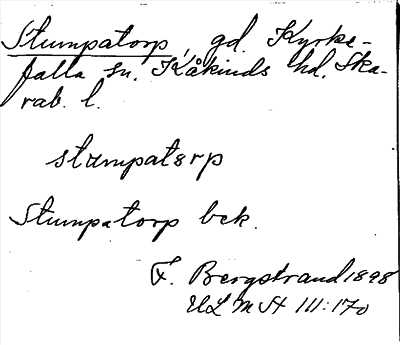 Stumpatorp, gd. Kyrke-
falla sn. Kåkinds hd. Ska-
rab. l.
stumpatərp
Stumpatorp bek.
F. Bergstrand 1898
ULMA 111:170